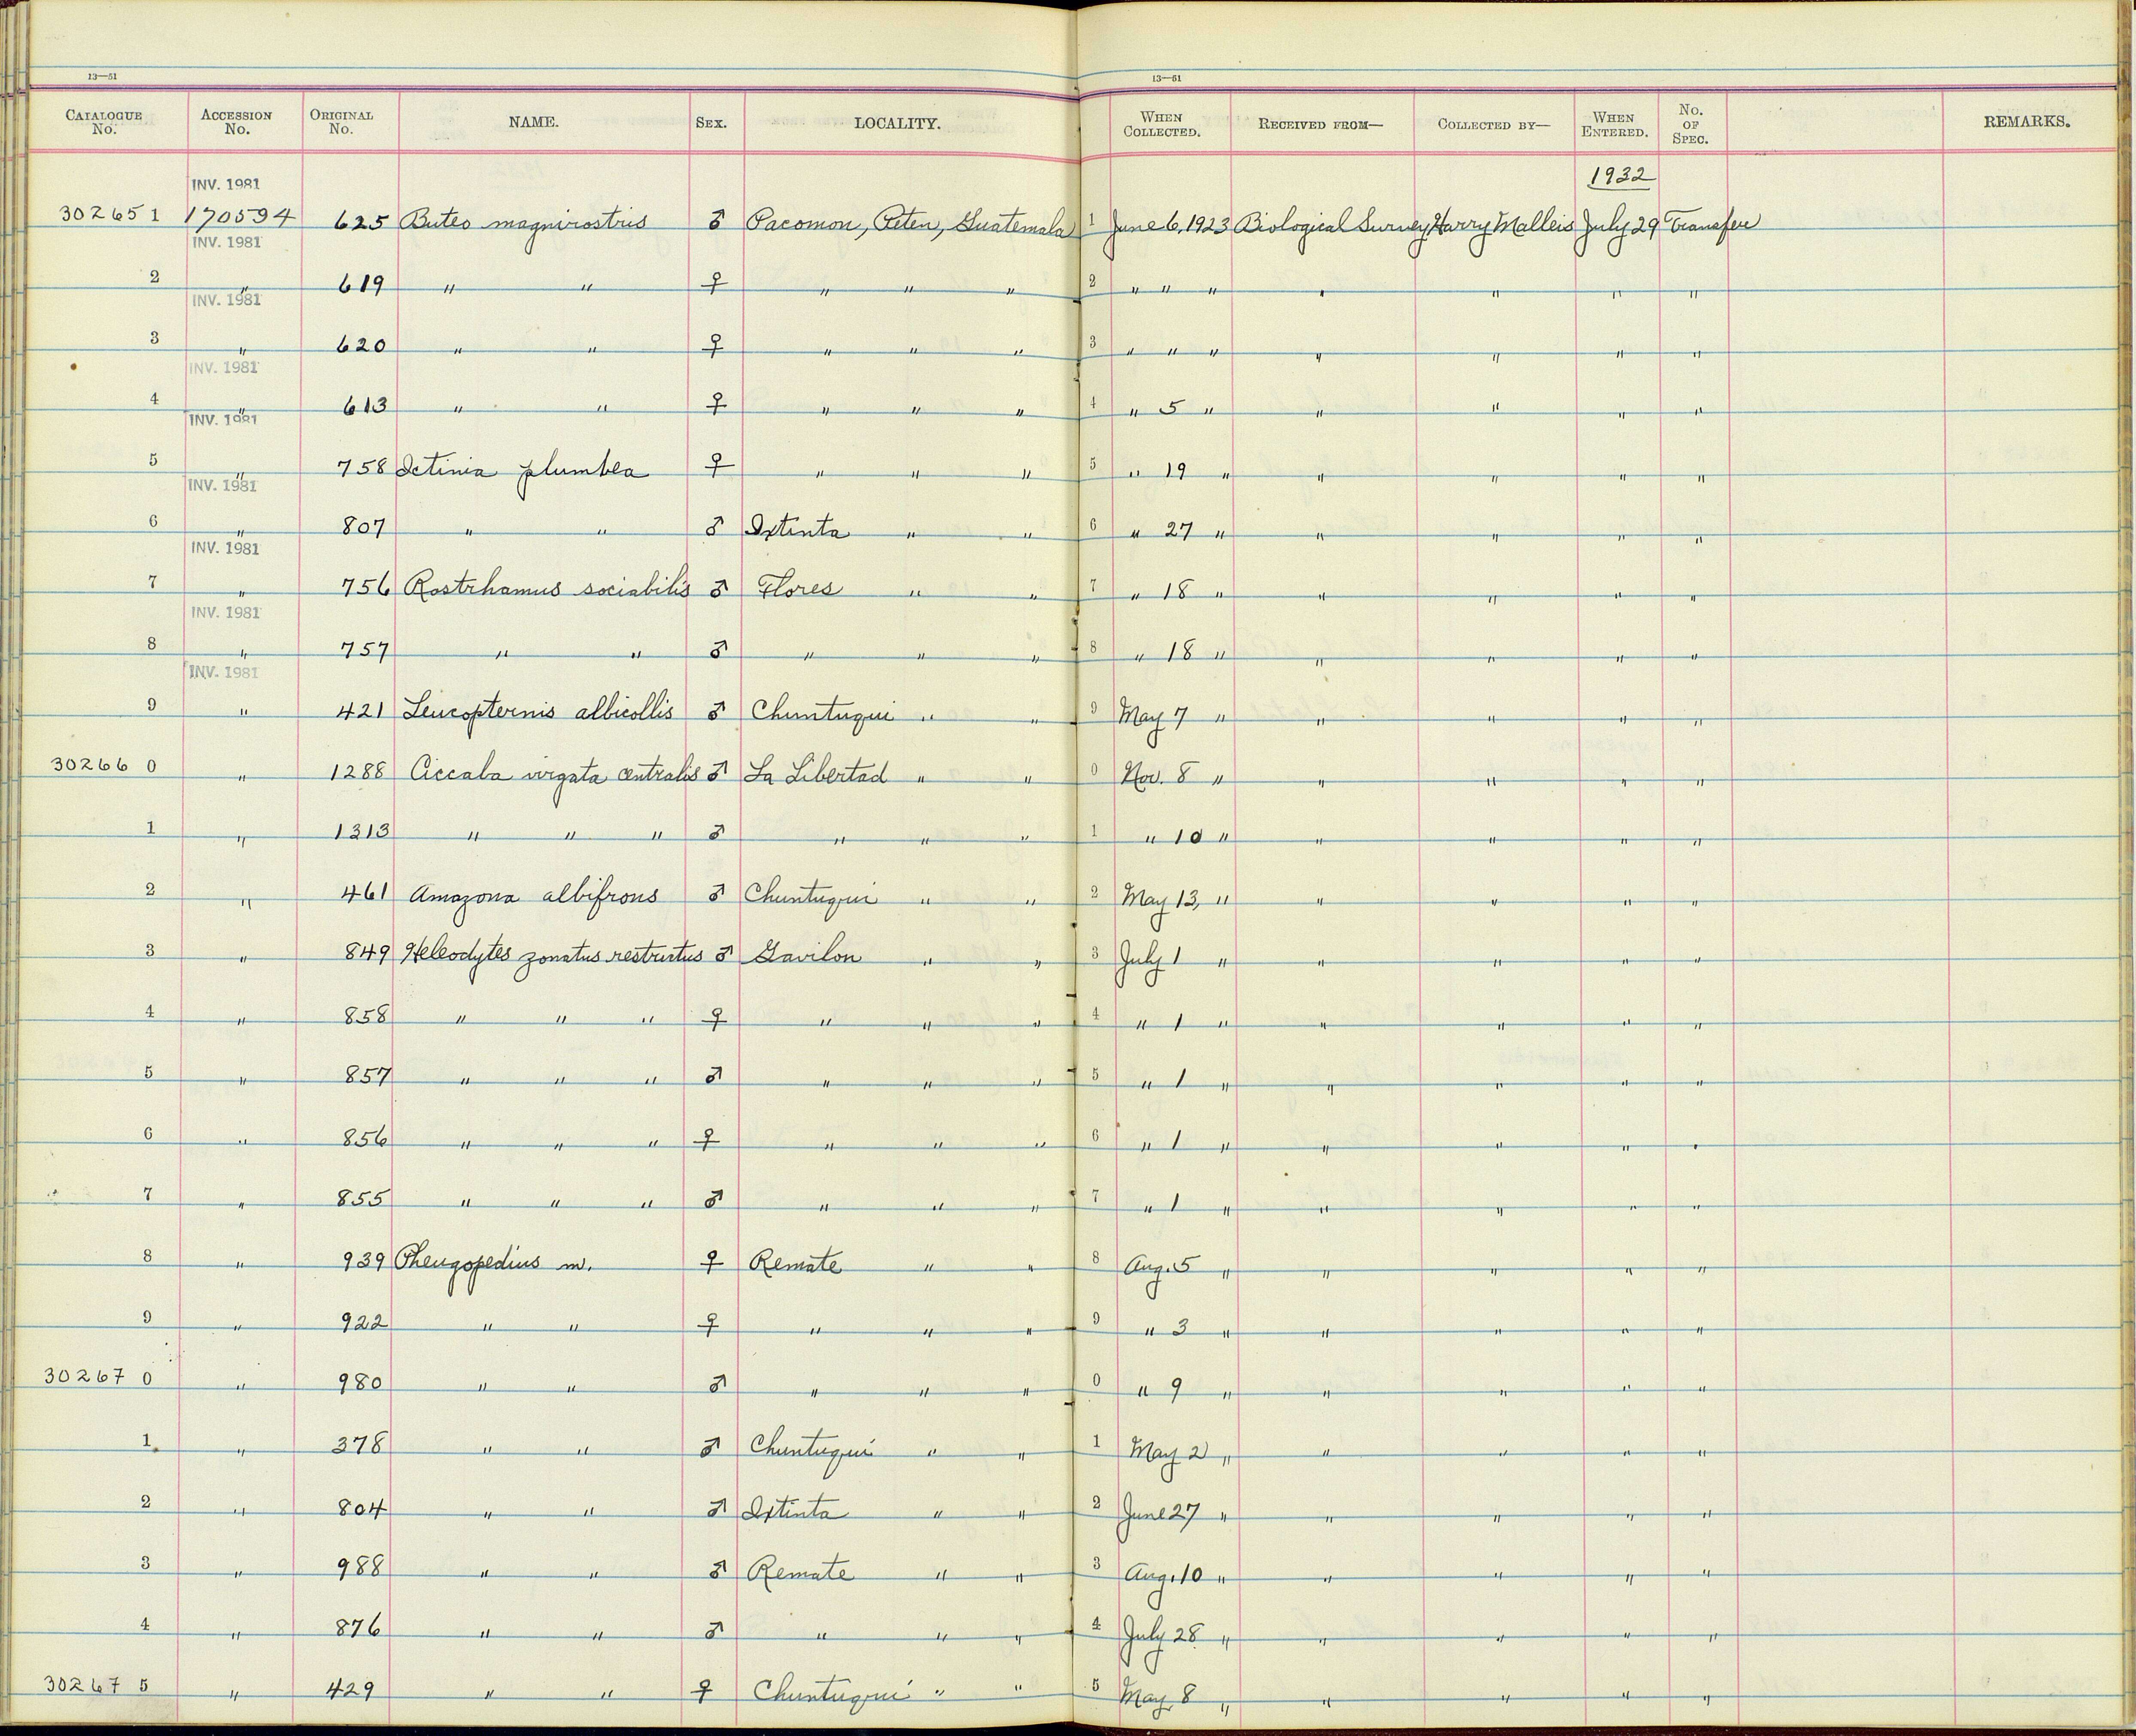 13—51 13—51
CATALOGUE No. ACCESSION No. ORIGINAL No. NAME. SEX. LOCALITY. WHEN COLLECTED. RECEIVED FROM— COLLECTED BY— WHEN ENTERED. No. OF SPEC. REMARKS.
INV. 1981 1932
302651 170594 625 Buteo magnirostris ♂ Pacomon, Peten, Guatemala 1 June 6, 1923 Biological Survey Harry Malleis July 29 Transfer
INV. 1981
2 " 619 " " ♀ " " " 2 " " " " " " "
INV. 1981
3 " 620 " " ♀ " " " 3 " " " " " " "
INV. 1981
4 " 613 " " ♀ " " " 4 " 5 " " " " "
INV. 1981
5 " 758 Ictinia plumbea ♀ " " " 5 " 19 " " " " "
INV. 1981
6 " 807 " " ♂ Ixtinta " " 6 " 27 " " " " "
INV. 1981
7 " 756 Rostrhamus sociabilis ♂ Flores " " 7 " 18 " " " " "
INV. 1981
8 " 757 " " ♂ " " " 8 " 18 " " " " "
INV. 1981
9 " 421 Leucopternis albicollis ♂ Chuntuqui " " 9 May 7 " " " " "
302660 " 1288 Ciccaba virgata centralis ♂ La Libertad " " 0 Nov. 8 " " " " "
1 " 1313 " " " ♂ " " " 1 " 10 " " " " "
2 " 461 Amazona albifrons ♂ Chuntuqui " " 2 May 13, " " " " "
3 " 849 Heleodytes zonatus restrictus ♂ Gavilon " " 3 July 1 " " " " "
4 " 858 " " " ♀ " " " 4 " 1 " " " " "
5 " 857 " " " ♂ " " " 5 " 1 " " " " "
6 " 856 " " " ♀ " " " 6 " 1 " " " " "
7 " 855 " " " ♂ " " " 7 " 1 " " " " "
8 " 939 Pheugopedius m. ♀ Remate " " 8 Aug. 5 " " " " "
9 " 922 " " ♀ " " " 9 " 3 " " " " "
302670 " 980 " " ♂ " " " 0 " 9 " " " " "
1 " 378 " " ♂ Chuntuqui " " 1 May 2 " " " " "
2 " 804 " " ♂ Ixtinta " " 2 June 27 " " " " "
3 " 988 " " ♂ Remate " " 3 Aug. 10 " " " " "
4 " 876 " " ♂ " " " 4 July 28 " " " " "
302675 " 429 " " ♀ Chuntuqui " " 5 May 8 " " " " "